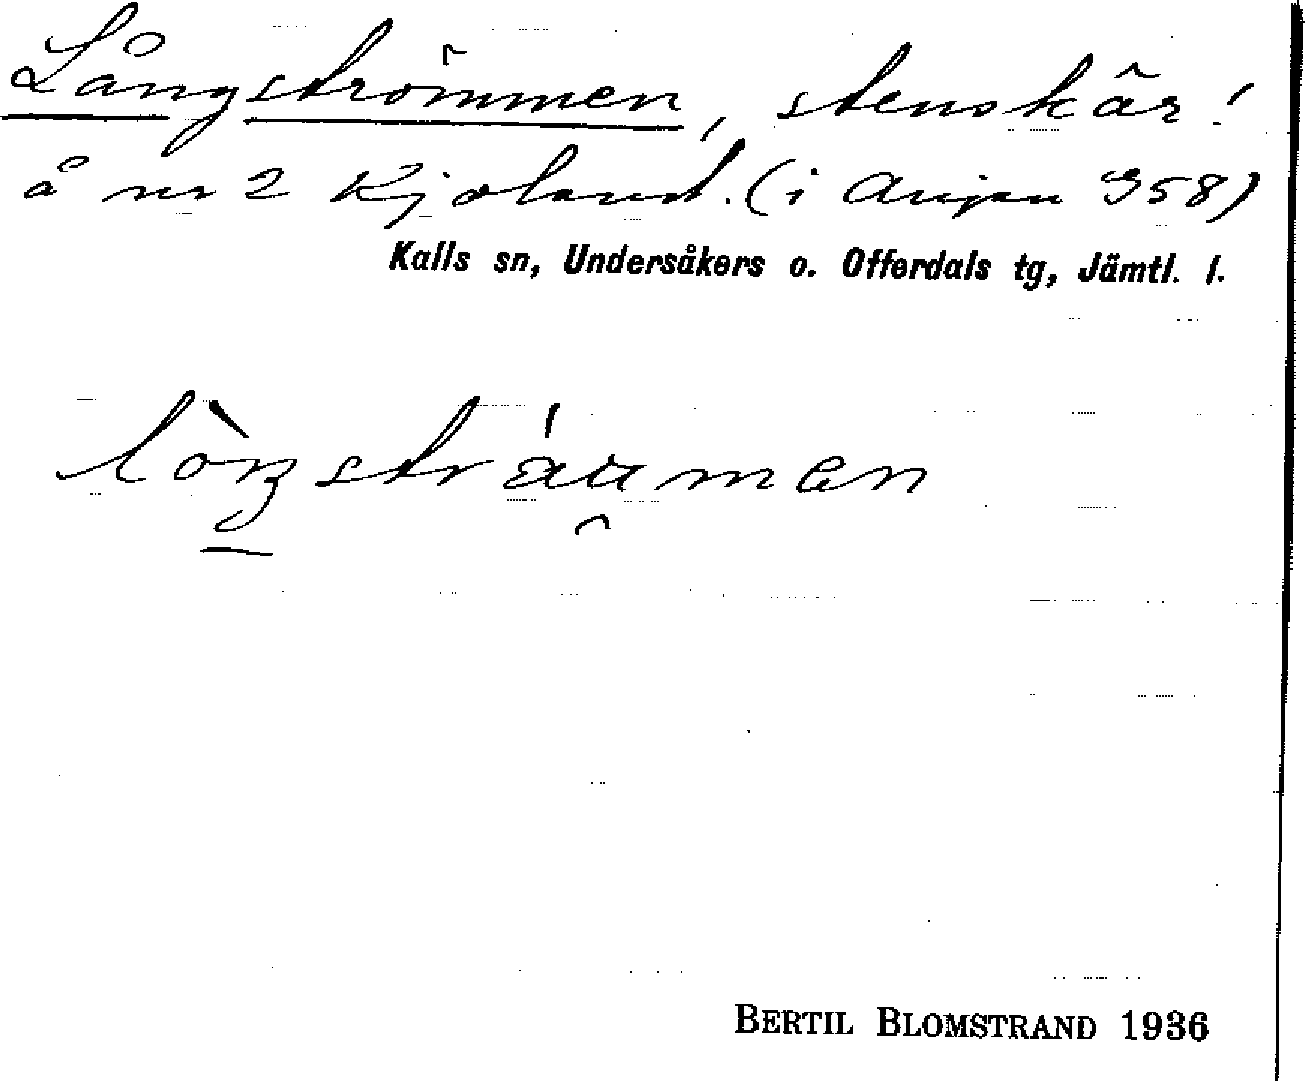 Långströmmen, stenskär i
å nr 2 Kjoland. (i Anjan 358)
Kalls sn, Undersåkers o. Offerdals tg, Jämtl. l.
BERTIL BLOMSTRAND 1936